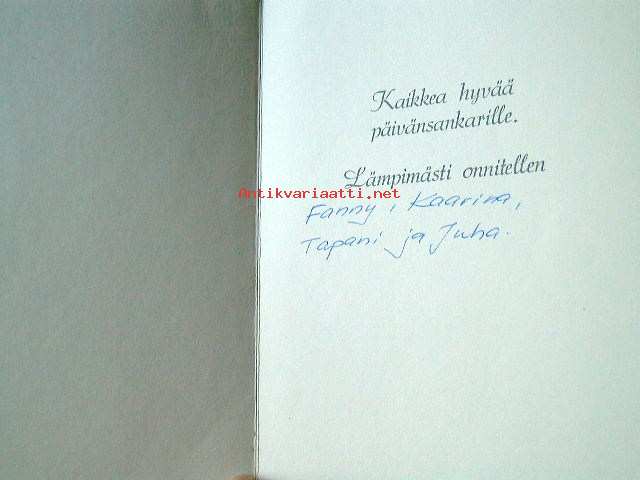 Kaikkea hyvää
päivänsankarille.
Lämpimästi onnitellen
Antikvariaatti.net
Fanny, Kaarina,
Tapani ja Juha.